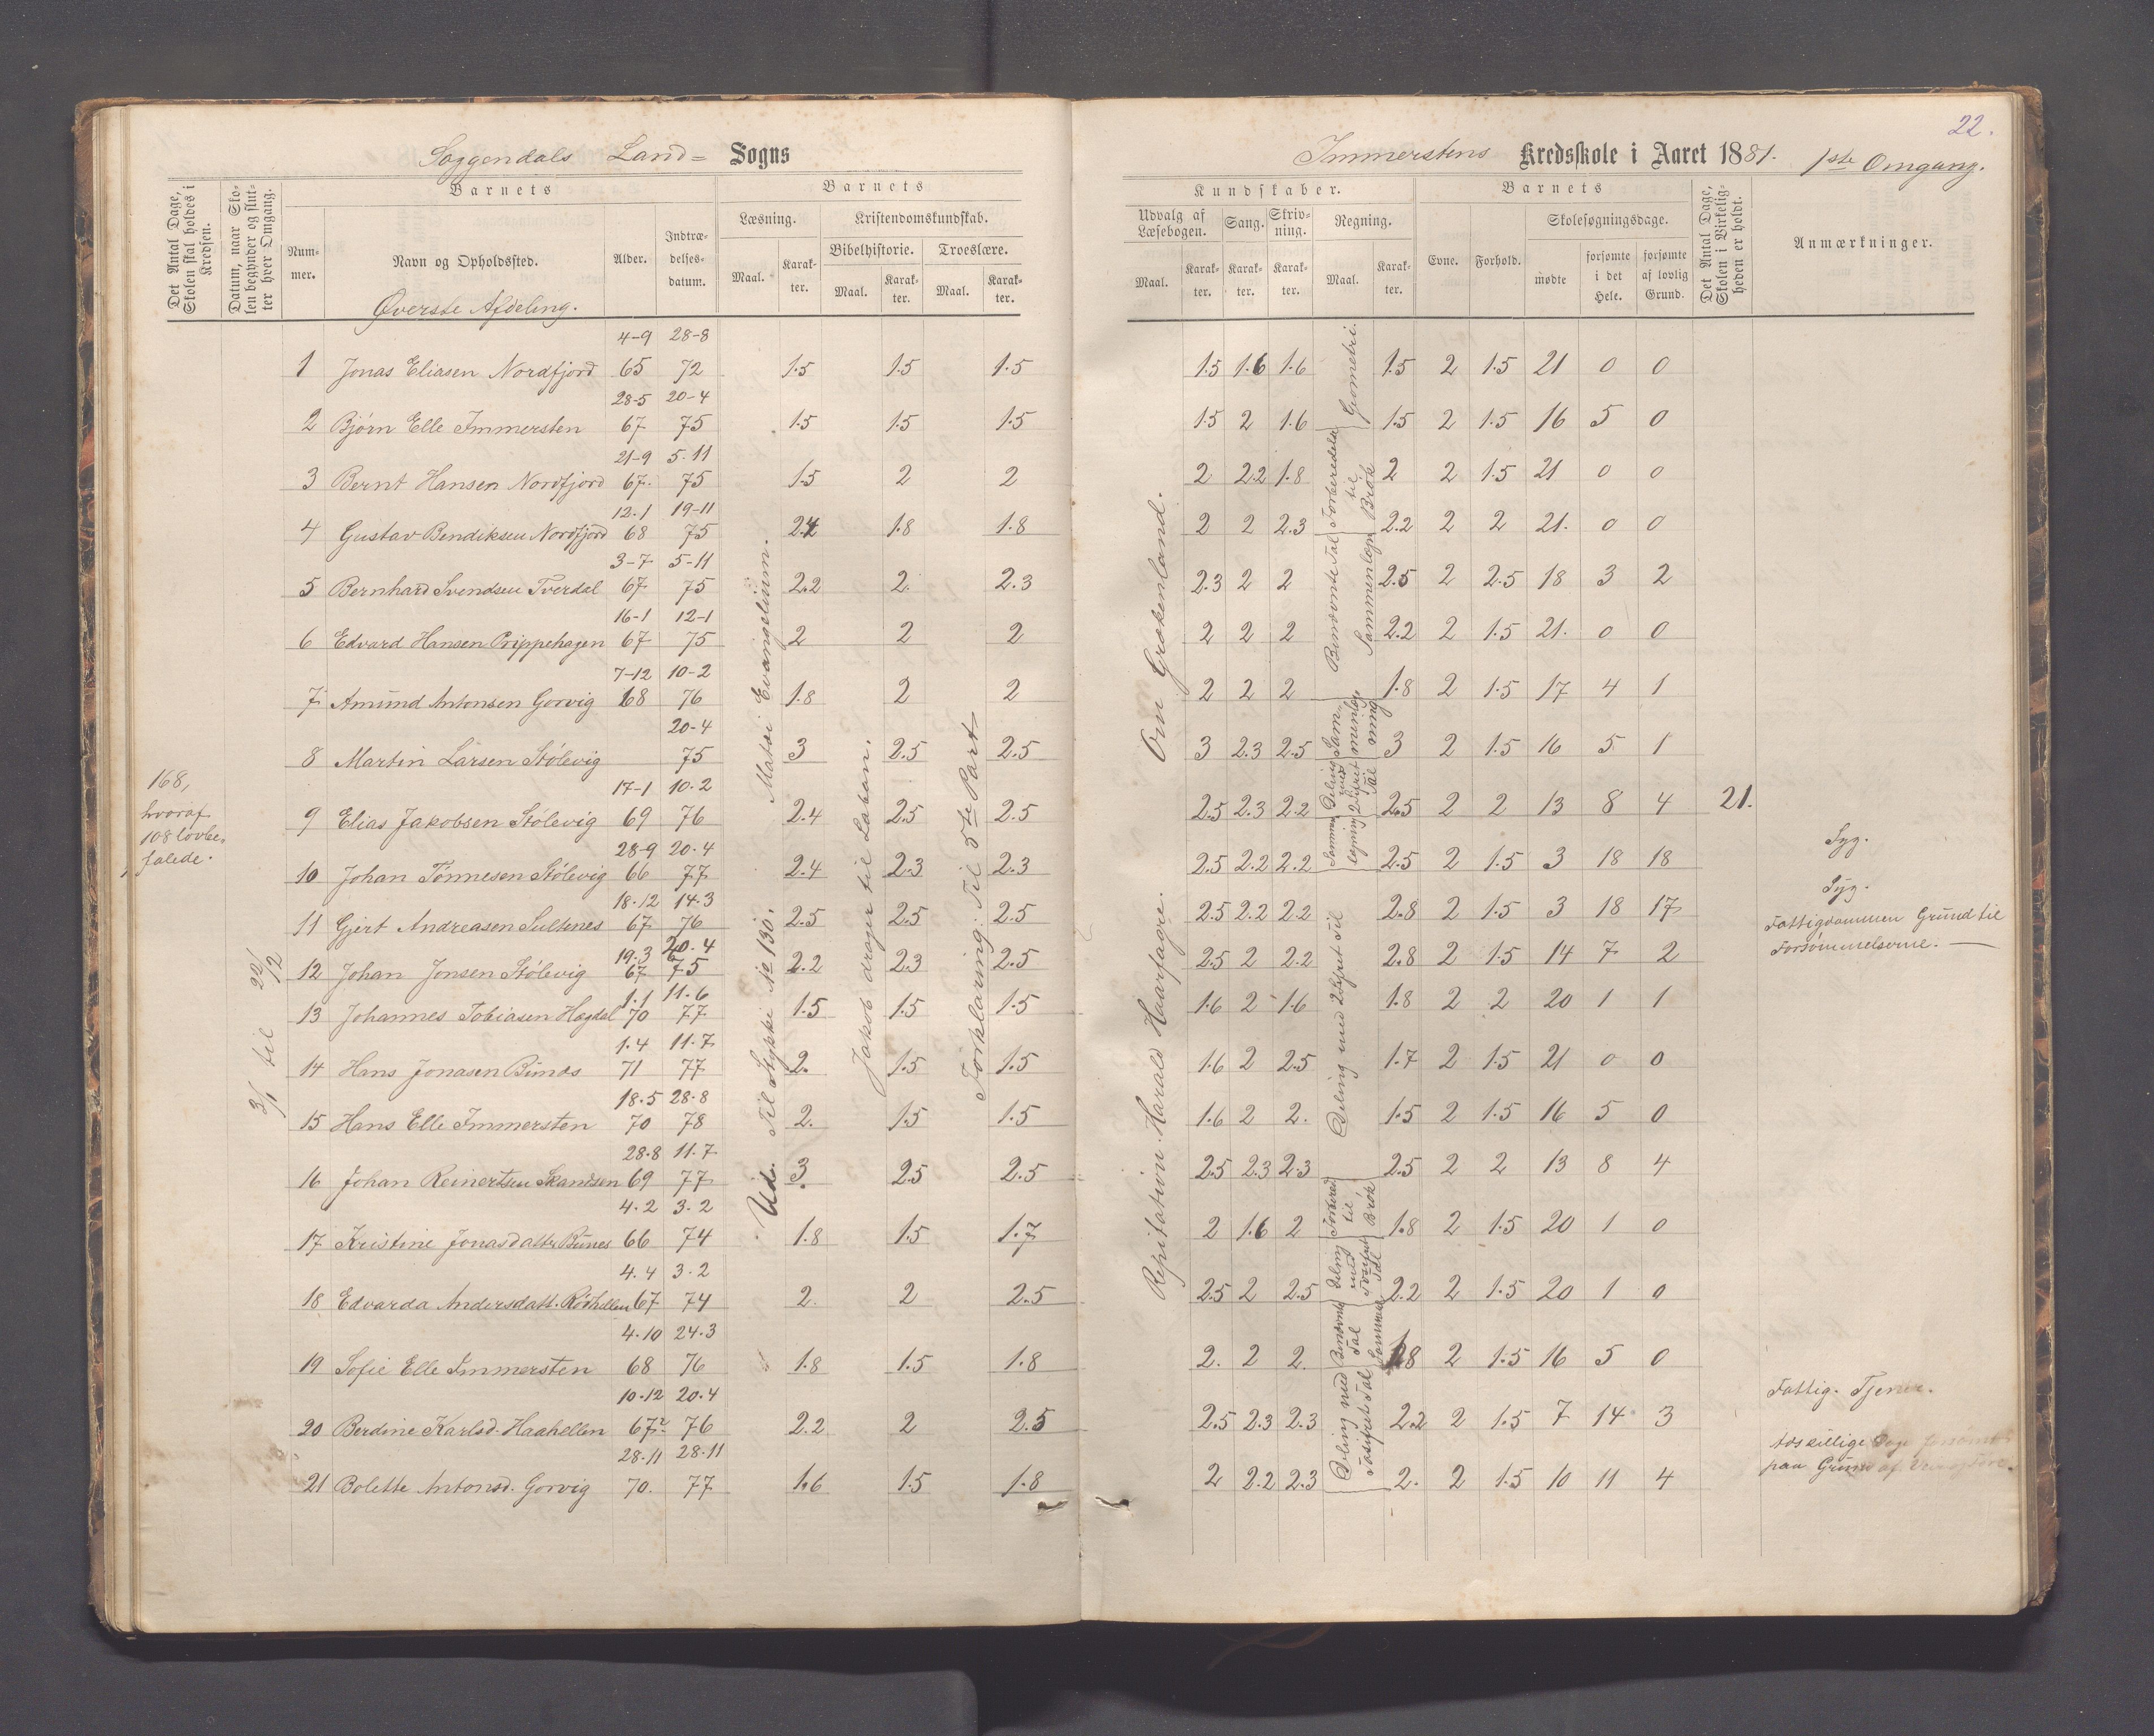 Soggendals Land= Sogns
Det Antal Dage, Skolen skal holdes i Kredsen.
Datum, naar Skolen begynder og slutter hver Omgang.
Barnets
Nummer.
Navn og Opholdssted.
Alder.
Indtrædelsesdatum.
Barnets
Læsning.
Maal.
Karakter.
Kristendomskundskab.
Bibelhistorie.
Maal.
Karakter.
Troeslære.
Maal.
Karakter.
Øverste Afdeling.
1 Jonas Eliasen Nordfjord 4-9 65 28-8 72 1.5 1.5 1.5
2 Bjørn Elle Immersten 28-5 67 20-4 75 1.5 1.5 1.5
3 Bernt Hansen Nordfjord 21-9 67. 5.11 75 1.5 2 2
4 Gustav Bendiksen Nordfjord 12.1 68 19-11 75 2.4 1.8 1.8
5 Bernhard Svendsen Tverdal 3-7 67 5-11 75 2.2 2. 2.3
6 Edvard Hansen Prippehagen 16-1 67 12-1 75 2 2 2
7 Amund Antonsen Gorvig 7-12 68 10-2 76 1.8 2 2
8 Martin Larsen Stølevig 20-4 75 3 2.5 2.5
9 Elias Jakobsen Stølevig 17-1 69 10.2 76 2.4 2.5 2.5
10 Johan Tønnesen Stølevig 28-9 66 20.4 77 2.4 2.3 2.3
11 Gjert Andreasen Sultenes 18.12 67 14.3 76 2.5 2.5 2.5
12 Johan Jonsen Stølevig 19.3 67 20.4 75 2.2 2.3 2.5
13 Johannes Tobiasen Hagdal 1.1 70 11.6 77 1.5 1.5 1.5
14 Hans Jonasen Bunes 1.4 71 11.7 77 2. 1.5 1.5
15 Hans Elle Immersten 18.5 70 28.8 78 2. 1.5 1.5
16 Johan Reinertsen Skandsen 28.8 69 11.7 77 3 2.5 2.5
17 Kristine Jonasdatter Bunes 4.2 66 3.2 74 1.8 1.5 1.7
18 Edvarda Andersdatt. Rødhellen 4.4 67 3.2 74 2. 2 2.5
19 Sofie Elle Immersten 4.10 68 24.3 76 1.8 1.5 1.8
20 Berdine Karlsd. Haahellen 10.12 67 20.4 76 2.2 2 2.5
21 Bolette Antonsd. Gorvig 28.11 70. 28.11 77 1.6 1.5 1.8
168,
hvoraf
108 lovbe-
falede.
3/1 til 22/12
Udv. Til Stykke No 130. Matæi Evangelium.
Jakob drager til Laban.
Forklaring. Til 5te Part
22.
Immerstens Kredsskole i Aaret 1881. 1ste Omgang.
Kundskaber.
Udvalg af Læsebogen.
Maal.
Karakter.
Sang.
Karakter.
Skrivning.
Karakter.
Regning.
Maal.
Karakter.
Barnets
Evne.
Forhold.
Skolesøgningsdage.
mødte
forsømte i det Hele.
forsømte af lovlig Grund.
Det Antal Dage, Skolen i Virkeligheden er holdt.
Anmærkninger.
1.5 1.6 1.6 1.5 2 1.5 21 0 0
1.5 2 1.6 1.5 2 1.5 16 5 0
2 2.2 1.8 2 2 1.5 21 0 0
2 2 2.3 2.2 2 2 21. 0 0
2.3 2 2 2.5 2 2.5 18 3 2
2 2 2 2.2 2 1.5 21. 0 0
2 2 2 1.8 2 1.5 17 4 1
3 2.3 2.5 3 2 1.5 16 5 1
2.5 2.3 2.2 2.5 2 2 13 8 4 21.
2.5 2.2 2.2 2.5 2 1.5 3 18 18 Syg.
2.5 2.2 2.2 2.8 2 1.5 3 18 17 Syg.
Fattigdommen Grund til
Forsømmelserne.
2.5 2 2.2 2.8 2 1.5 14 7 2
1.6 2 1.6 1.8 2 2 20 1 1
1.6 2 2.5 1.7 2 1.5 21 0 0
1.6 2 2. 1.5 2 1.5 16 5 0
2.5 2.3 2.3 2.5 2 2 13 8 4
2 1.6 2 1.8 2 1.5 20 1 0
2.5 2 2.5 2.2 2 1.5 20 1 0
2. 2 2. 1.8 2 1.5 16 5 0
2.5 2.3 2.3 2.2 2 1.5 7 14 3 Fattig. Tjener.
2 2.2 2.3 2. 2 1.5 10 11 4 Adskillige Dage forsømt
paa Grund af
Om Grækenland.
Repitation. Harald Haarfagre.
Geometri.
Forberedels til Brøk
Benævnte Tal Sammenlægn
Sammenlægning
Deling med 2cifret Tal
Deling med 2cifret Til
Forbered til Brøk
Deling med Tosifret Tal
Benævnte Tal
Deling med Tosifret Tal